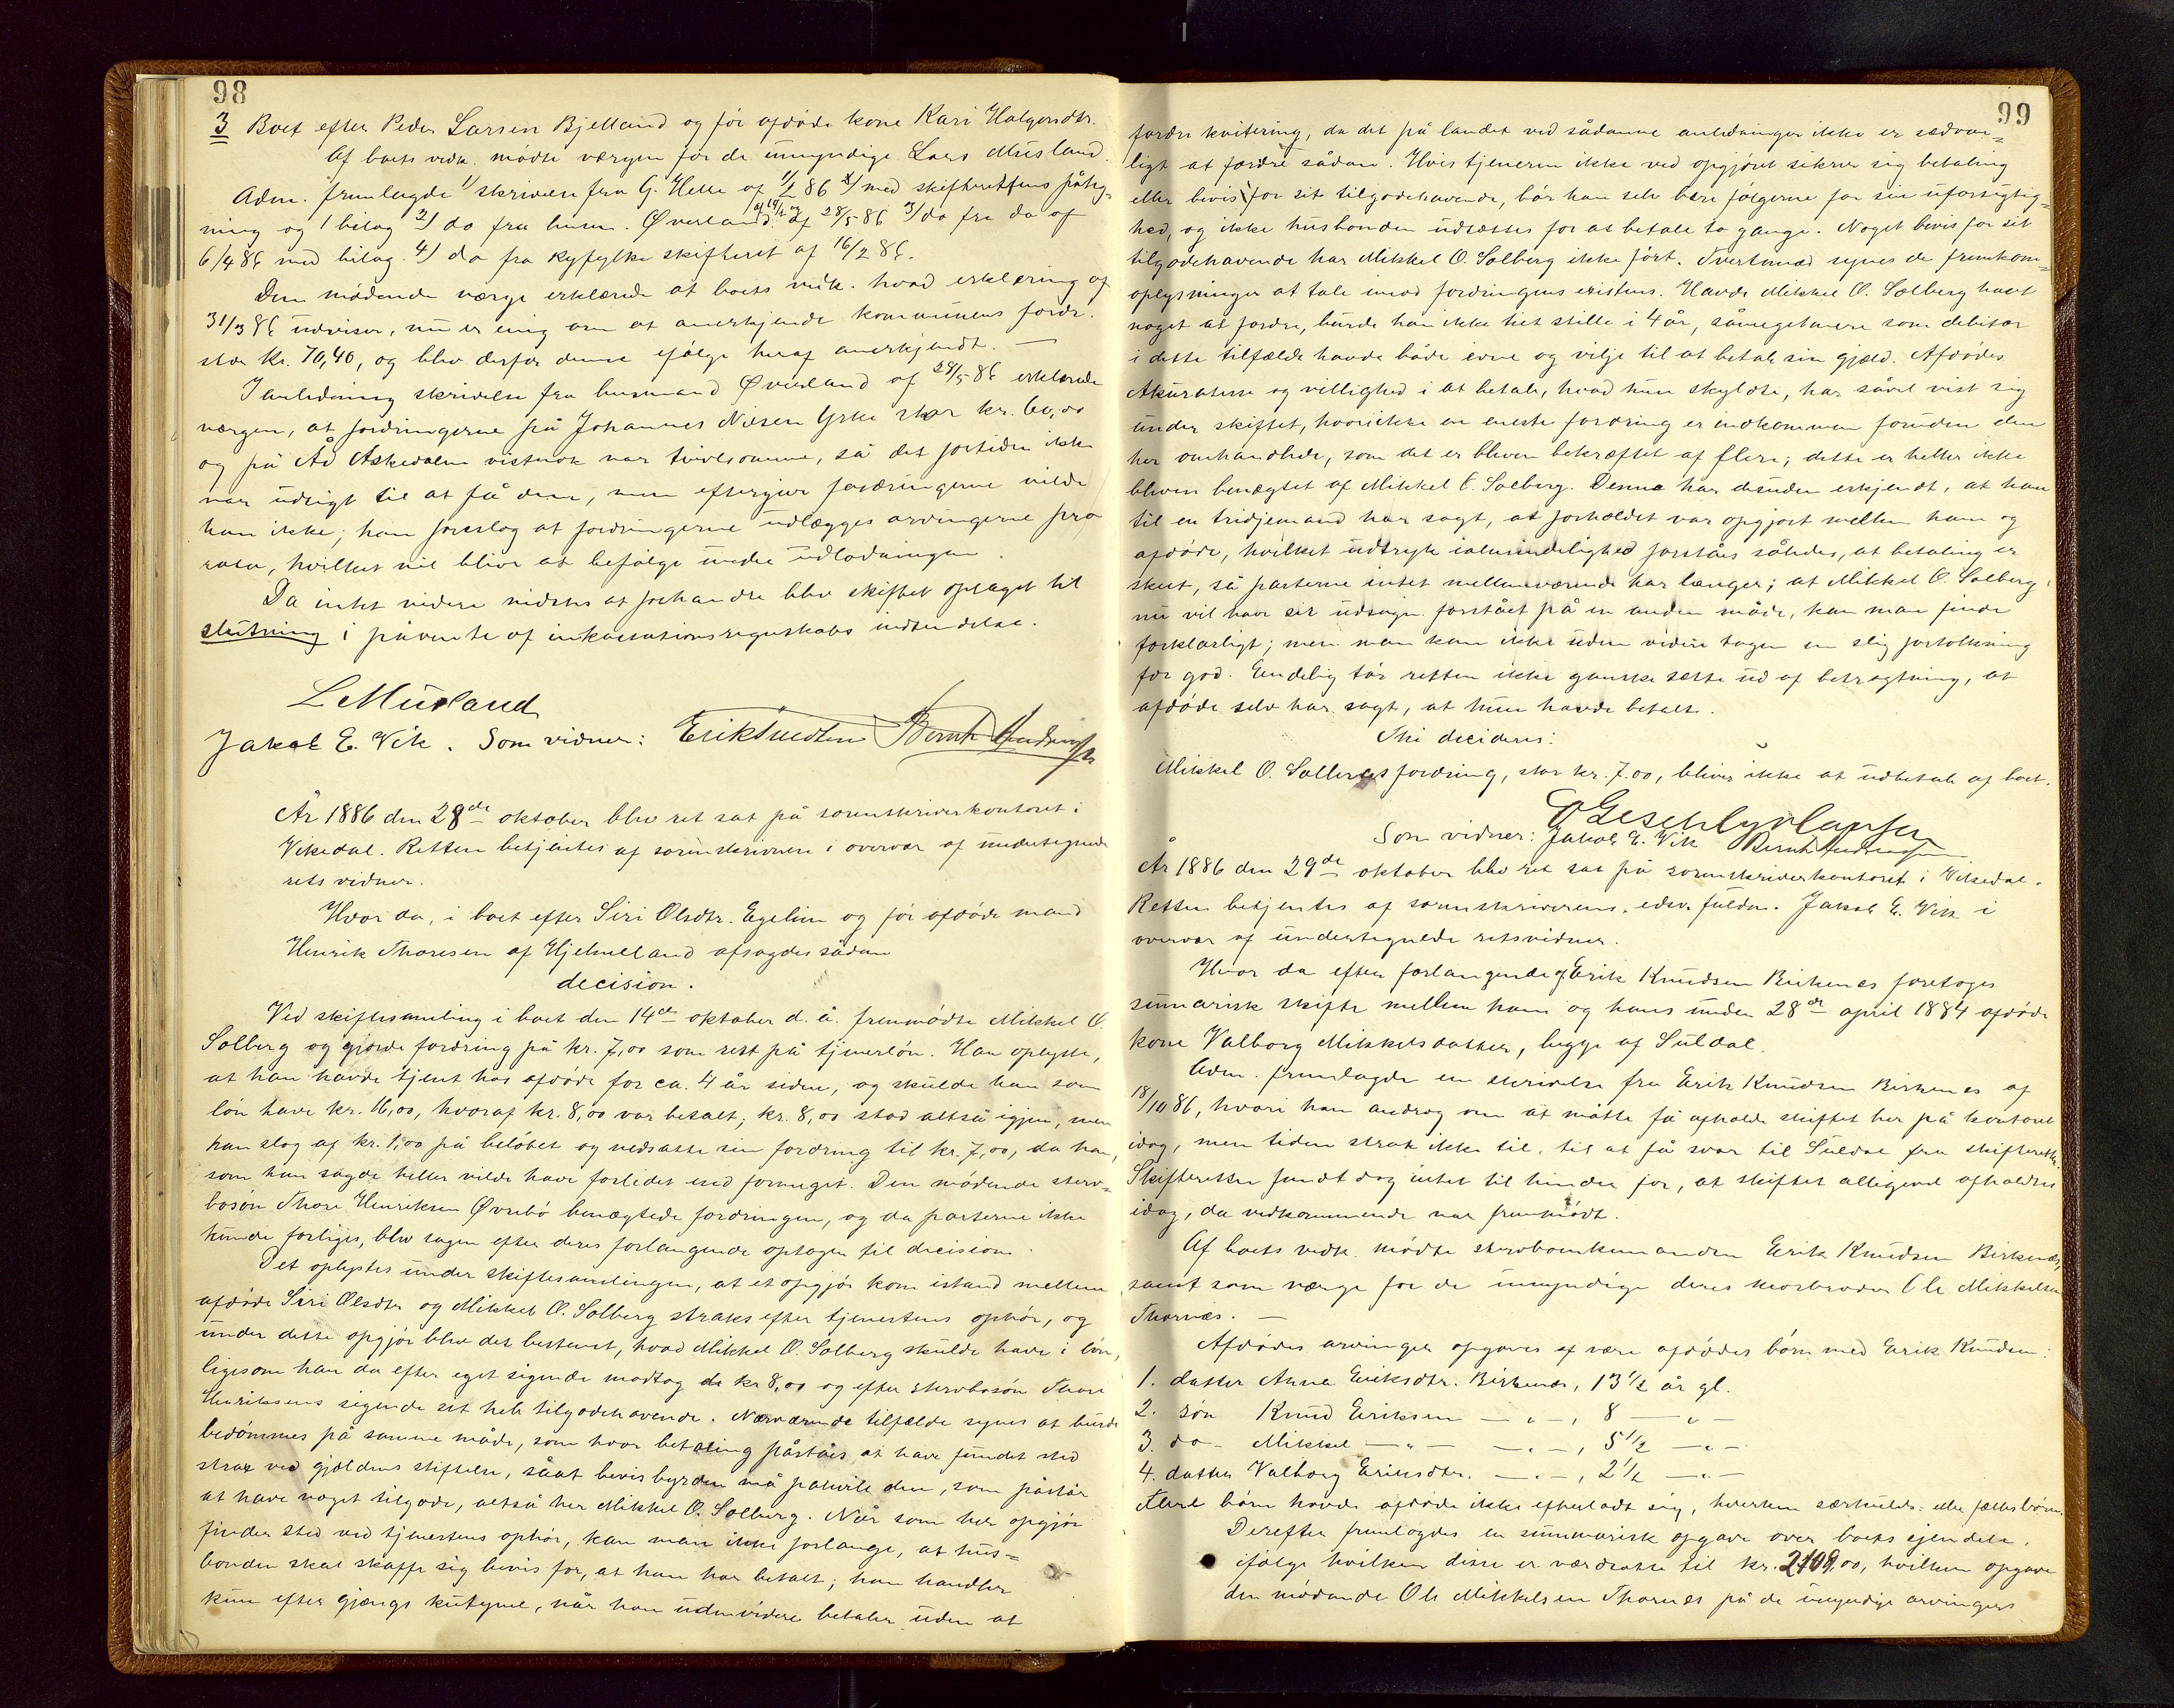 98
3 Boet efter Peder Larsen Bjelland og før afdøde kone Kari Halgersdtr.
Af boets vedk. mødte værgen for de umyndige Lars Musland.
Adm. fremlagde 1/ skrivelse fra G. Helle af 11/2 86 med skifterettens påteg-
ning og 1 bilag 2/ do fra husm. Øverland af 28/5 86 3/ do fra do af
6/4 86 med bilag. 4/ do fra Ryfylke skifteret af 16/2 86.
Den mødende værge erklærede at boets vedk. hvad erklæring af
31/3 86 udviser, nu er enig om at anerkjende kommunens fordr.
stor kr. 70,40, og blev derfor denne ifølge heraf anerkjendt. —
I anledning skrivelse fra husmand Øverland af 28/5 86 erklærede
værgen, at fordringerne på Johannes Nilsen Yrke stor kr. 60,00
og på Ad Askedalen vistnok var tvivlsomme, så det fortiden ikke
var udsigt til at få dem, men eftergive fordringerne vilde
han ikke; han foreslog at fordringerne udlægges arvingerne pro
rata, hvilket vil blive at befølge under udlodningen.
Da intet videre vidstes at forhandle blev skiftet optaget til
slutning i påvente af inkassationsregnskabs indsendelse.
L Musland
Jakob E. Vik. Som vidner: Erik Knudsen Bernh Andreassen
År 1886 den 28de oktober blev ret sat på sorenskriverkontoret i
Vikedal. Retten betjentes af sorenskriveren i overvær af undertegnede
rets vidner.
Hvor da, i boet efter Siri Olsdtr. Egelien og før afdøde mand
Henrik Thoresen af Hjelmeland afsagdes sådan
decision.
Ved skiftesamling i boet den 14de oktober d. å. fremmødte Mikkel O.
Solberg og gjorde fordring på kr. 7,00 som rest på tjenerløn. Han oplyste,
at han havde tjent hos afdøde for ca. 4 år siden, og skulde han som
løn have kr. 16,00, hvoraf kr. 8,00 var betalt; kr. 8,00 stod altså igjen, men
han slog af kr. 1,00 på beløbet og nedsatte sin fordring til kr. 7,00, da han,
som han sagde heller vilde have forlidet end formeget. Den mødende sterv-
bosøn Thore Henriksen Øvrebø benægtede fordringen, og da parterne ikke
kunde forliges, blev sagen efter deres forlangende optagen til decision.
Det oplystes under skiftesamlingen, at et opgjør kom istand mellem
afdøde Siri Olsdtr og Mikkel O. Solberg straks efter tjenestens ophør, og
under dette opgjør blev det bestemt, hvad Mikkel O. Solberg skulde have i løn,
ligesom han da efter eget sigende modtog de kr 8,00 og efter stervbosøn Thore
Henriksens sigende sit hele tilgodehavende. Nærværende tilfælde synes at burde
bedømmes på samme måde, som hvor betaling påstås at have fundet sted
strax ved gjældens stiftelse, såat bevisbyrden må påhvile den, som påstår
at have noget tilgode, altså her Mikkel O. Solberg. Når som her opgjør
finder sted ved tjenestens ophør, kan man ikke forlange, at hus-
bonden skal skaffe sig bevis for, at han har betalt; han handler
kun efter gjængs kutyme, når han udenvidere betaler uden at
99
fordre kvitering, da det på landet ved sådanne anledninger ikke er sædvan-
ligt at fordre sådan. Hvis tjeneren ikke ved opgjøret sikrer sig betaling
eller bevis for sit tilgodehavende, bør han selv bære følgerne for sin uforsigtig-
hed, og ikke husbonden udsættes for at betale to gange. Noget bevis for sit
tilgodehavende har Mikkel O. Solberg ikke ført. Tvertimod synes de fremkom-
oplysninger at tale imod fordringens existens. Havde Mikkel O. Solberg havt
noget at fordre, burde han ikke tiet stille i 4 år, såmegetmere som debitor
i dette tilfælde havde både evne og vilje til at betale sin gjæld. Afdødes
Akuratesse og villighed i at betale, hvad hun skyldte, har såvel vist sig
under skiftet, hvor ikke en eneste fordring er indkommen foruden den
her omhandlede, som det er bleven bekræftet af flere; dette er heller ikke
bleven benægtet af Mikkel O. Solberg. Denne har desuden erkjendt, at han
til en tredjemand har sagt, at forholdet var opgjort mellem ham og
afdøde, hvilket udtryk i almindelighed forståes således, at betaling er
skeet, så parterne intet mellemværende har længer; at Mikkel O. Solberg
nu vil have sit udsagn forstået på en anden måde, kan man finde
forklarligt; men man kan ikke uden videre tagen en slig fortolkning
for god. Endelig tør retten ikke ganske sætte ud af betragtning, at
afdøde selv har sagt, at hun havde betalt.
Thi decideres:
Mikkel O. Solbergs fordring, stor kr. 7.00, bliver ikke at udbetale af boet.
Som vidner: Jakob E. Vik Bernh Andreassen
År 1886 den 29de oktober blev ret sat på sorenskriverkontoret i Vikedal.
Retten betjentes af sorenskriverens edsv. fuldm. Jakob E. Vik i
overvær af undertegnede retsvidner.
Hvor da efter forlangende af Erik Knudsen Birkenes foretoges
summarisk skifte mellem ham og hans under 28de april 1884 afdøde
kone Valborg Mikkelsdatter, begge af Suldal.
Adm. fremlagde en skrivelse fra Erik Knudsen Birkenes af
18/10 86, hvori han androg om at måtte få afholde skiftet her på kontoret
idag, men tiden strak ikke til, til at få svar til Suldal fra skifteretten.
Skifteretten fandt dog intet til hinder for, at skiftet alligevel afholdtes
idag, da vedkommende var fremmødt.
Af boets vedk. mødte stervboenkemanden Erik Knudsen Birkenes,
samt som værge for de umyndige deres morbroder Ole Mikkelsen
Thornæs. —
Afdødes arvinger opgaves at være afdødes børn med Erik Knudsen:
1. datter Anna Eriksdtr. Birkenes, 13 1/2 år gl.
2. søn Knud Eriksen — " —, 8 — " —
3. do - Mikkel — " — — " —, 5 1/2 — " —
4. datter Valborg Eriksdtr. — " —, 2 1/2 — " —
Flere børn havde afdøde ikke efterladt sig, hverken særkulds- eller fællesbørn.
Derefter fremlagdes en summarisk opgave over boets ejendele,
ifølge hvilken disse er værdsatte til kr. 2108,00, hvilken opgave
den mødende Ole Mikkelsen Thornes på de umyndige arvingers